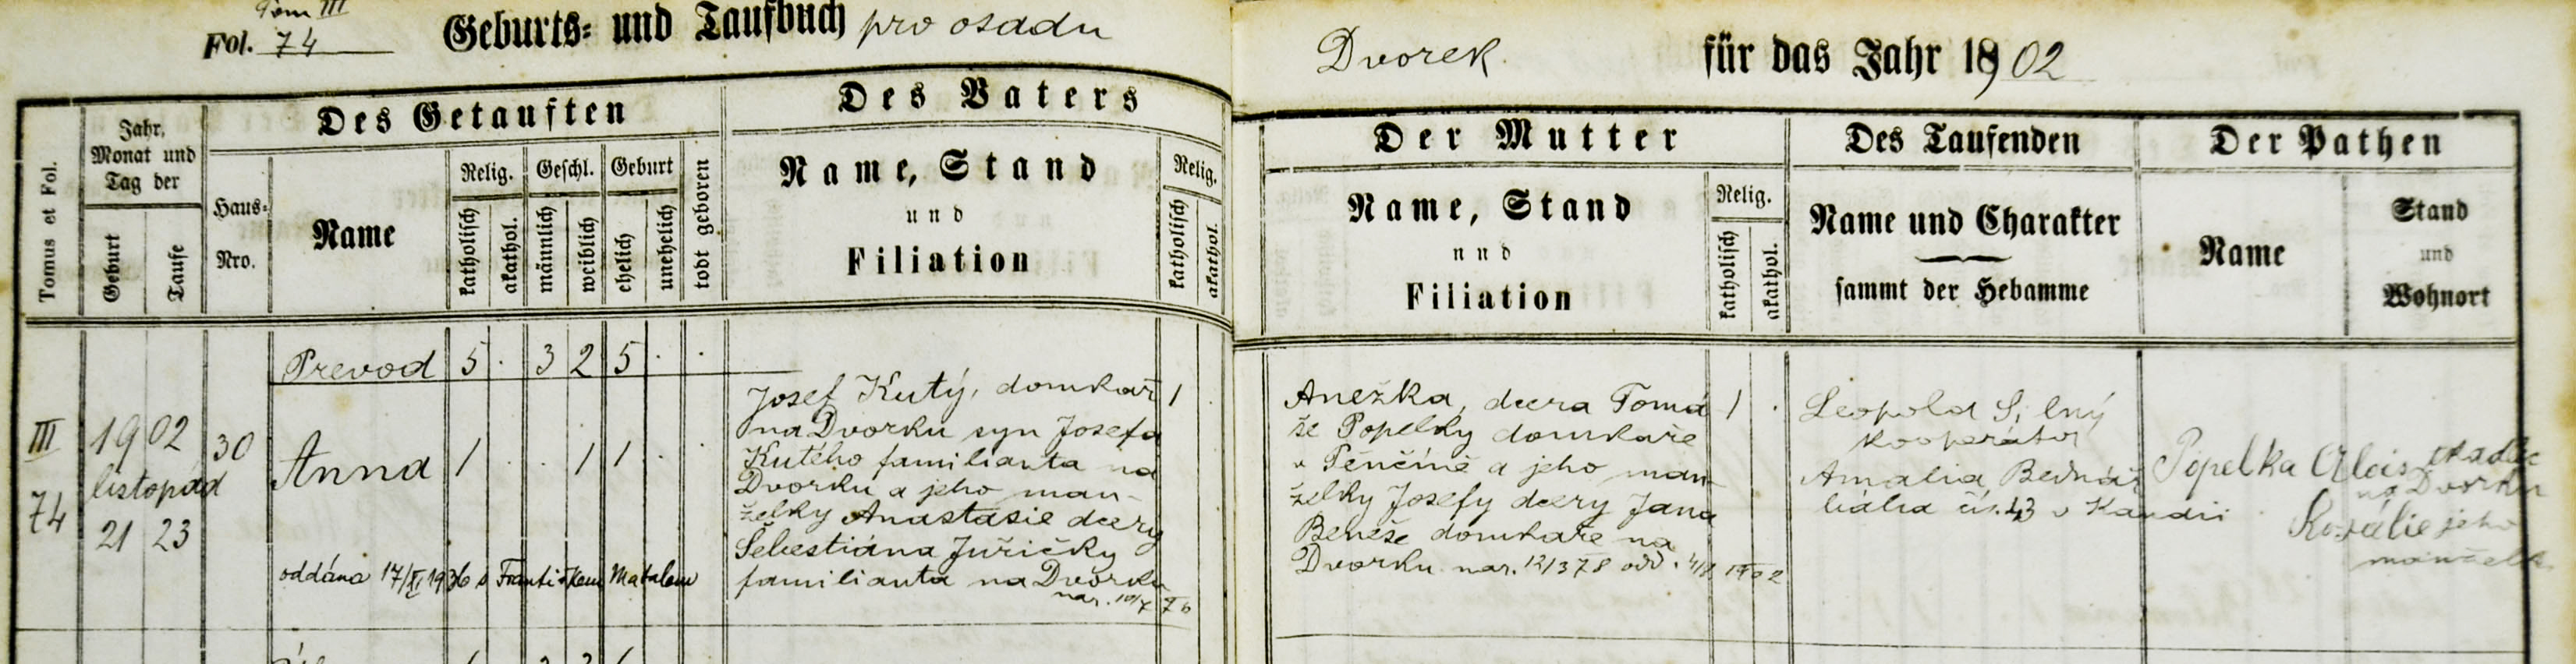 Tom III
Fol. 74
Geburts- und Taufbuch pro osadu
Dvorek
für das Jahr 1902
Tomus et Fol.
Jahr,
Monat und
Tag der
Geburt
Taufe
Haus-
Nro.
Des Getauften
Name
Relig.
katholisch
akathol.
Geschl.
männlich
weiblich
Geburt
ehelich
unehelich
todt geboren
Des Vaters
Name, Stand
und
Filiation
Relig.
katholisch
akathol.
Der Mutter
Name, Stand
und
Filiation
Relig.
katholisch
akathol.
Des Taufenden
Name und Charakter
sammt der Hebamme
Der Pathen
Name
Stand
und
Wohnort
Prevod 5 . 3 2 5 . .
III
74
1902
listopad
21 23
30
Anna 1 . . 1 1 . .
oddána 17/XI 1936 s Františkem Matalem
Josef Kutý, domkař 1 .
na Dvorku syn Josefa
Kutého familianta na
Dvorku a jeho man-
želky Anastasie dcery
Šebestiána Juřičky
familianta na Dvorku
nar. 10/7 76
Anežka, dcera Tomá 1 .
še Popelky domkaře
v Pěnčíně a jeho man-
želky Josefy dcery Jana
Beneše domkaře na
Dvorku nar. 12/3 78 odd. 4/2 1902
Leopold Silný
kooperátor
Amalia Bednář
čís. 43 v
Popelka Alois
na Dvorku
Rozálie jeho
manželk